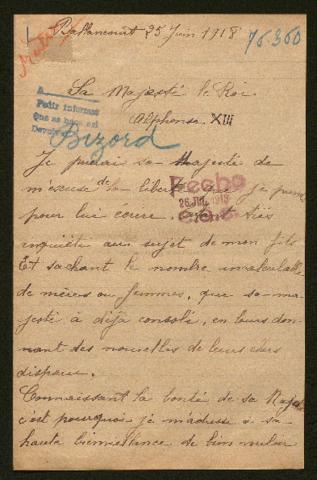 Ballancourt 25 Juin 1918
76.360
Sa Majesté le Roi
Alphonse XIII
A
Petit informé
Bizord
Je prierais sa Majesté de
m'excuse de la liberté que je prens
28 JUL 1918
pour lui écrire, étant très
inquiète au sujet de mon fils
Et sachant le nombre incalculable
de mères ou femmes, que sa ma-
jesté à déjà consolé, en leurs don-
nant des nouvelles de leurs chers
disparu.
Connaissant la bonté de sa Majesté
c'est pourquoi je m'adresse a sa
haute bienveillance de bien vouloir